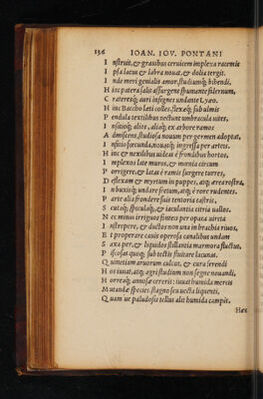 136 IOAN. IOV. PONTANI
Instruit, & grauibus ceruicem implexa racemis
Ipsa lacus & labra nouat, & dolia tergit.
Inde meri genialis amor, studiumq; bibendi,
Hinc patera salis assurgens spumante falernum,
Cratereq; auri insignes undante Lyæo.
Hinc Baccho læti colles, flexæq; sub ulmis
Pendula textilibus nectunt umbracula uites,
Insitioq; alios, aliaq; ex arbore ramos
Admiscens, studiosa nouum per germen adoptat,
Insitio fœcunda, nouasq; ingressa per artes.
Hinc & nexilibus uideas è frondibus hortos,
Implexos late muros, & mœnia circum
Porrigere, & latas è ramis surgere turres,
Deflexam & myrtum in puppes, atq; ærea rostra,
In buxisq; undare fretum, atq; è rore rudentes.
Parte alia frondere suis tentoria castris,
Scutaq;, spiculaq;, & iaculantia citria uallos.
Nec minus irriguos fonteis per opaca uireta
Instrepere, & ductos non una in brachia riuos,
Et properare cauis operosa canalibus undam
Saxa per, & liquidos stillantia marmora fluctus,
Piscosasq; quoq; sub tectis fluitare lacunas.
Quinetiam aruorum cultus, & cura serendi
Hos iuuat, atq; agri studium non segne nouandi,
Horreaq; annosæ cereri: iuuat humida mercis
Mutandæ species stagno seu uecta liquenti,
Quam ue paludosa tellus alit humida campis.
Hæc